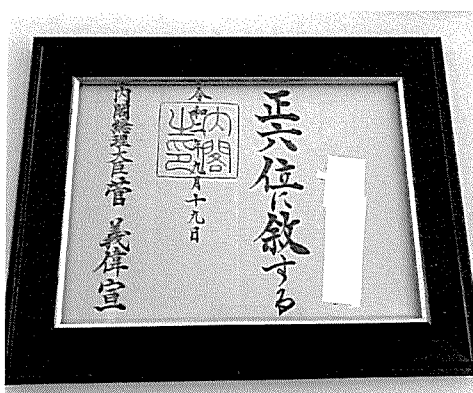 正六位に敍する
令和 年九月十九日
内閣之印
内閣総理大臣菅 義偉宣